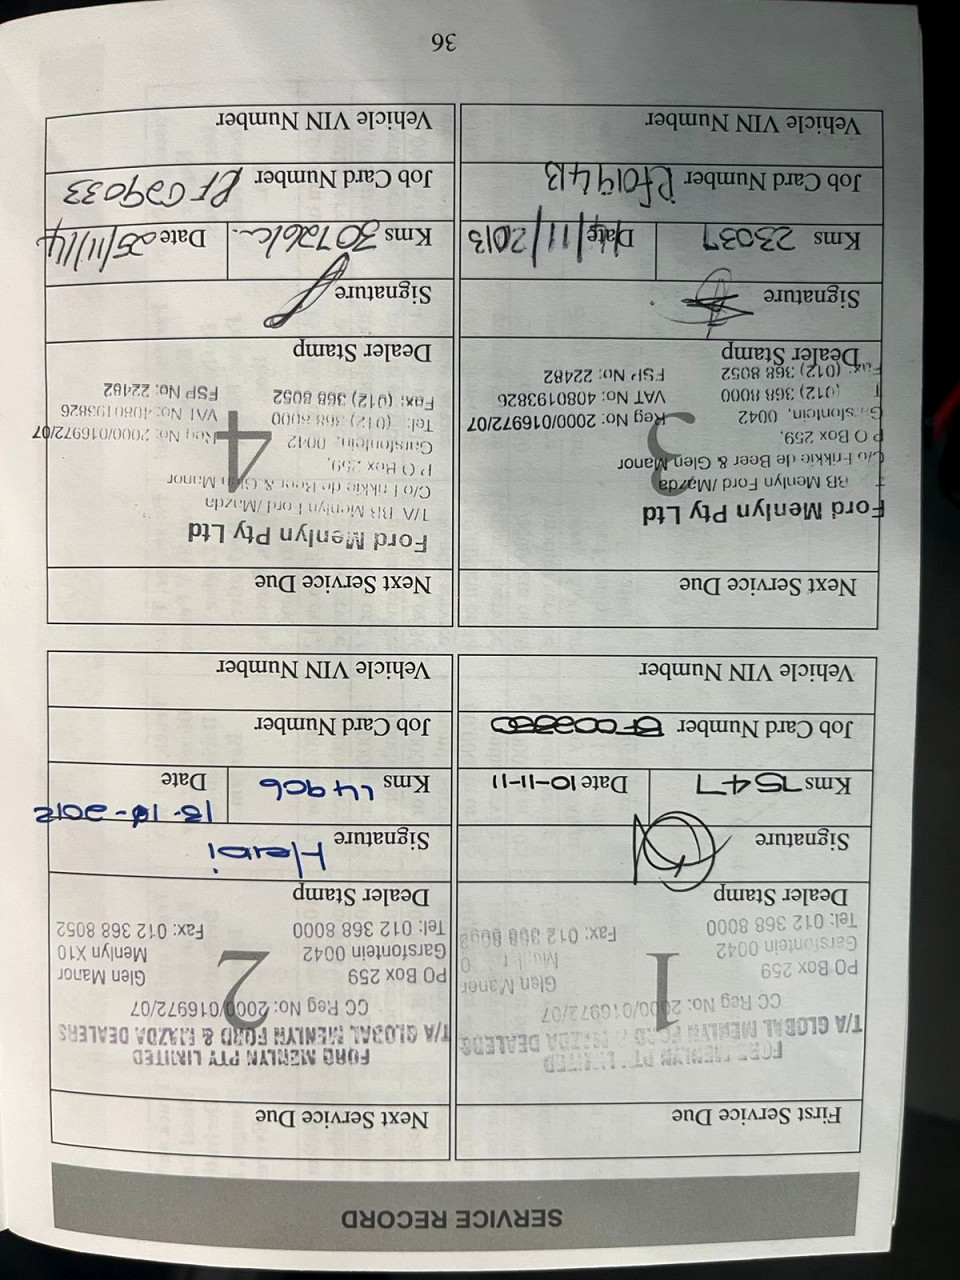 SERVICE RECORD
First Service Due
FORD MENLYN PTY LIMITED
T/A GLOBAL MENLYN FORD & MAZDA DEALERS
CC Reg No: 2000/016972/07
PO Box 259 Glen Manor
Garsfontein 0042
Tel: 012 368 8000 Fax: 012 368 8052
1
Dealer Stamp
Signature
Kms 7547 Date 10-11-11
Job Card Number
Vehicle VIN Number
Next Service Due
FORD MENLYN PTY LIMITED
T/A GLOBAL MENLYN FORD & MAZDA DEALERS
CC Reg No: 2000/016972/07
PO Box 259 Glen Manor
Garsfontein 0042 Menlyn X10
Tel: 012 368 8000 Fax: 012 368 8052
2
Dealer Stamp
Signature
Kms 14906 Date
Job Card Number
Vehicle VIN Number
Next Service Due
Ford Menlyn Pty Ltd
BB Menlyn Ford /Mazda
C/o Frikkie de Beer & Glen Manor
P O Box 259,
Garsfontein, 0042 Reg No: 2000/016972/07
(012) 368 8000 VAT No: 4080193826
Fax: (012) 368 8052 FSP No: 22482
3
Dealer Stamp
Signature
Kms 23037 Date 14/11/2013
Job Card Number PF019413
Vehicle VIN Number
Next Service Due
Ford Menlyn Pty Ltd
T/A BB Menlyn Ford /Mazda
C/o Frikkie de Beer & Glen Manor
P O Box 259,
Garsfontein, 0042 Reg No: 2000/016972/07
Tel: (012) 368 8000 VAT No: 4080193826
Fax: (012) 368 8052 FSP No: 22482
4
Dealer Stamp
Signature
Kms 30726k Date 25/11/14
Job Card Number PF029033
Vehicle VIN Number
36